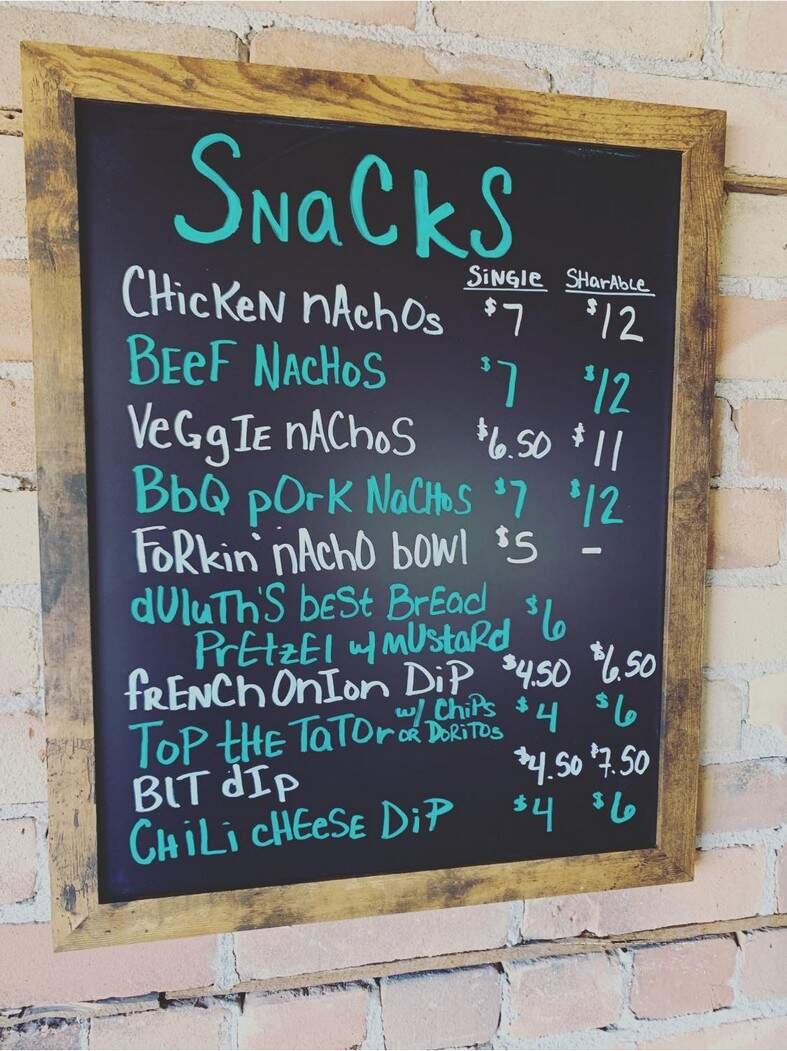 SNaCkS
SiNGle SHarAble
CHicKeN nAchOs $7 $12
BEeF NACHoS $7 $12
VeGgIE nAChoS $6.50 $11
BbQ pOrK NaCHoS $7 $12
FoRkin' nAchO bowl $5 -
dUluTh'S beSt BrEad $6
PrEtzEl w/ MUstaRd
fRENCh OnIon DiP $4.50 $6.50
TOP tHE TaTOr w/ ChiPs OR DoRiTOs $4 $6
BLT dIp $4.50 $7.50
CHiLi cHEeSE DiP $4 $6